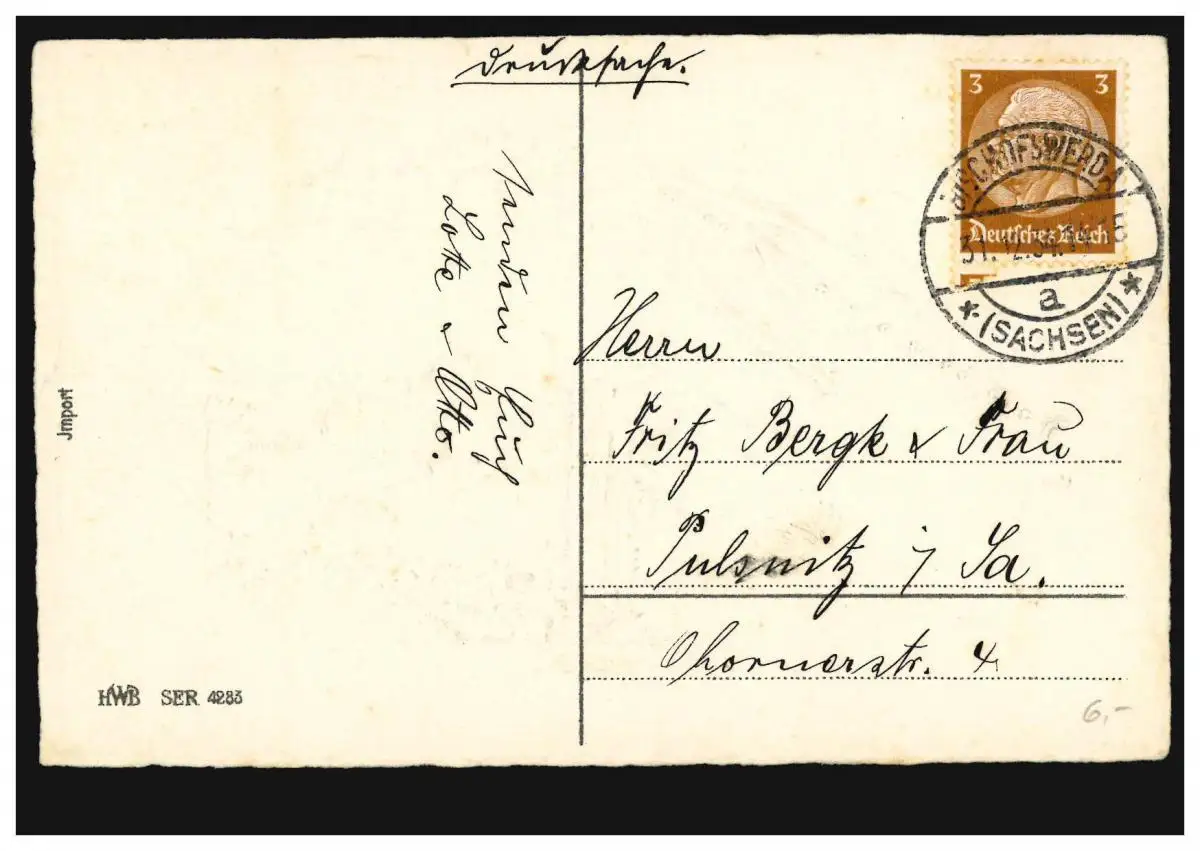 Drucksache.
3 3
Deutsches Reich
BISCHOFSWERDA
31.12.34.
a
* (SACHSEN) *
Senden
Lotte & Otto.
Herrn
Fritz Bergk & Frau
Pulsnitz i/ Sa.
Ohornerstr. 4
Jmport
HWB SER 4283
6,-